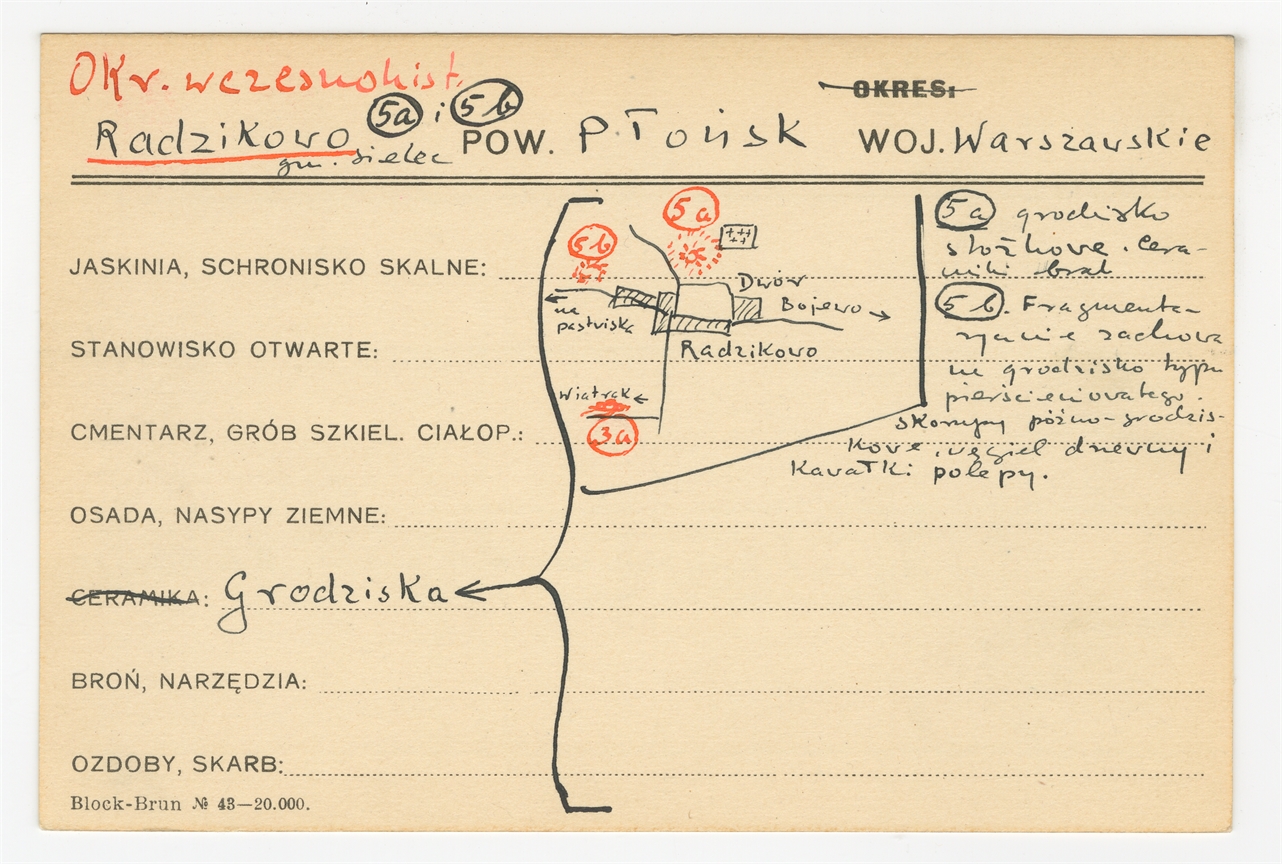 Okr. wczesnohist.
OKRES:
Radzikowo 5a i 5b POW. Płońsk WOJ. Warszawskie
gm. Sielec
JASKINIA, SCHRONISKO SKALNE:
STANOWISKO OTWARTE:
CMENTARZ, GRÓB SZKIEL. CIAŁOP.:
OSADA, NASYPY ZIEMNE:
CERAMIKA: Grodziska
BROŃ, NARZĘDZIA:
OZDOBY, SKARB:
Block-Brun № 43—20.000.
5a
5b
Dwór
Bojewo
na
pastwiska
Radzikowo
Wiatrak
3a
5a grodzisko
stożkowe. Cera-
miki brak
5b. Fragmenta-
rycznie zachowa
ne grodzisko typu
pierścieniowatego.
Skorupy późno-grodzis-
kowe, węgiel drzewny i
kawałki polepy.